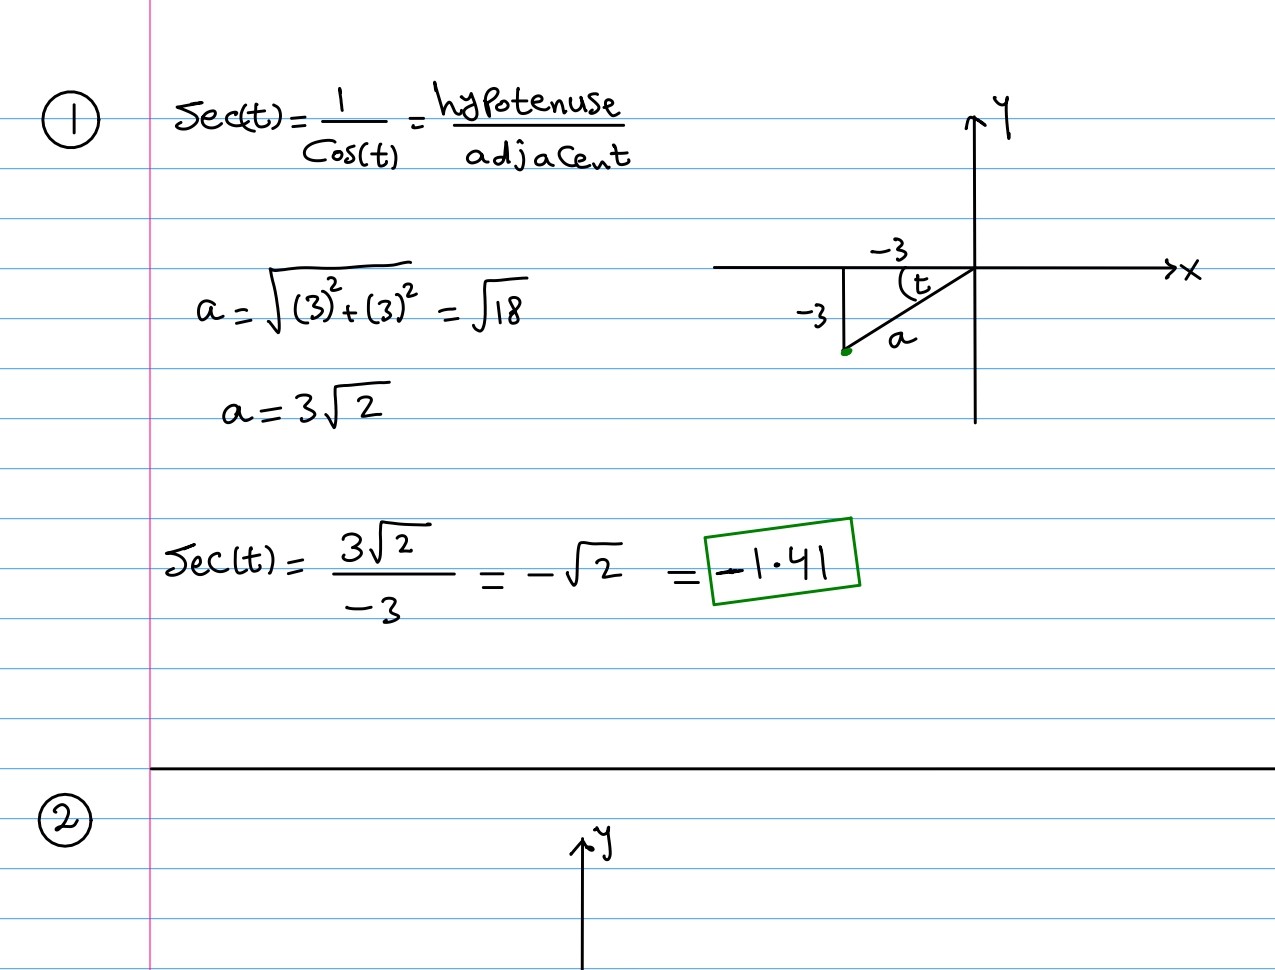 ① Sec(t) = 1/Cos(t) = hypotenuse/adjacent
Y
-3
x
(t
-3
a
a = √((3)²+(3)²) = √18
a = 3√2
Sec(t) = 3√2/-3 = -√2 = -1.41
②
y